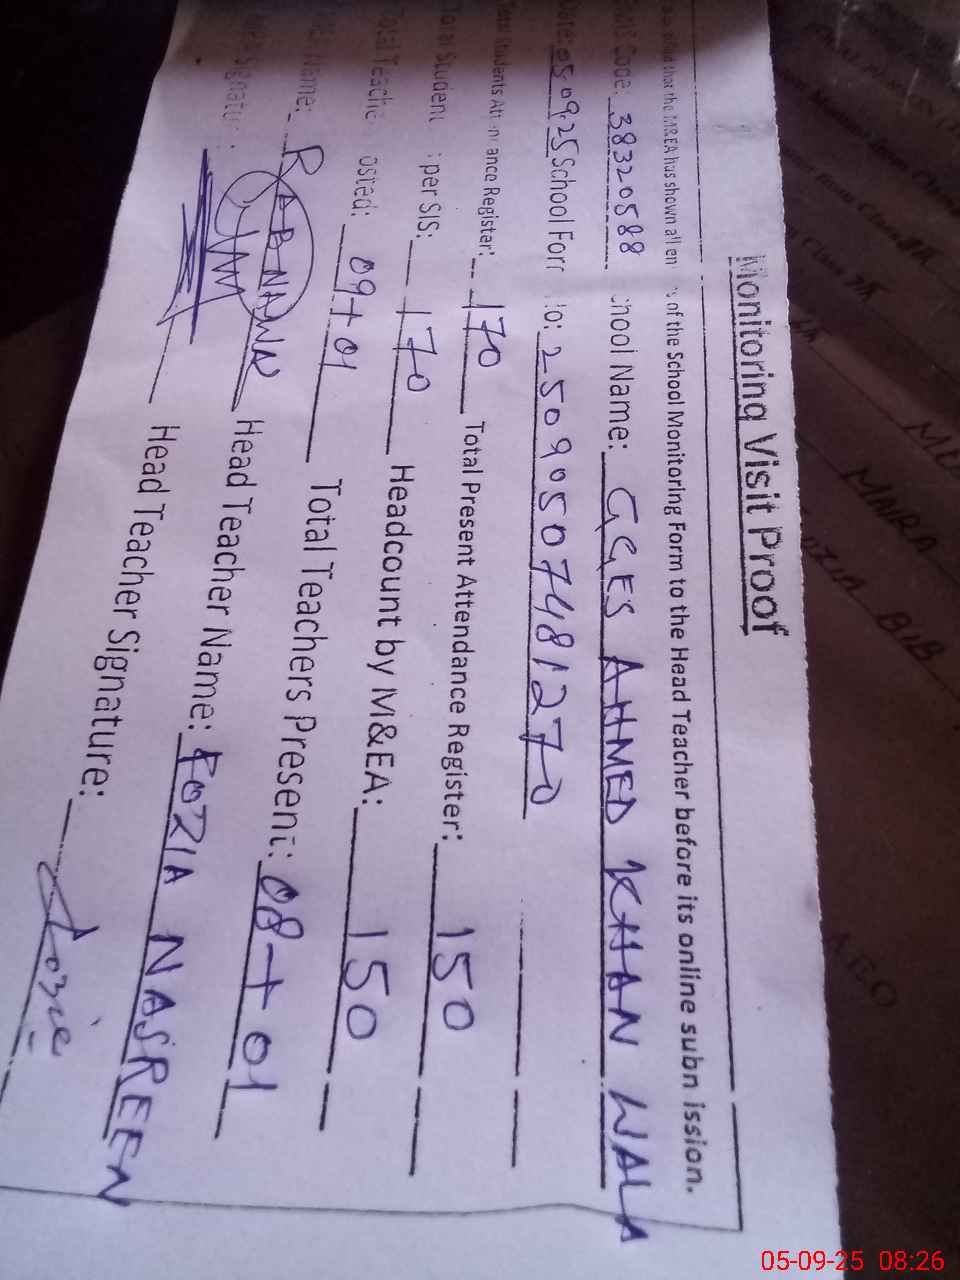 Monitoring Visit Proof
that the MREA has shown all en of the School Monitoring Form to the Head Teacher before its online subn ission.
Code: 38320588 chool Name: GGES AHMED KHAN WALA
Date: 050925 School Forr No: 2509050748127 0
Total Students Att n ance Register: 170 Total Present Attendance Register: 150
Total Student per SIS: 170 Headcount by M&EA: 150
Total Teache osted: 09+01 Total Teachers Present: 08+01
Name: RABNAWAZ Head Teacher Name: FOZIA NASREEN
Signature: Head Teacher Signature: Fozie
MAIRA
BIB
AEO
05-09-25 08:26